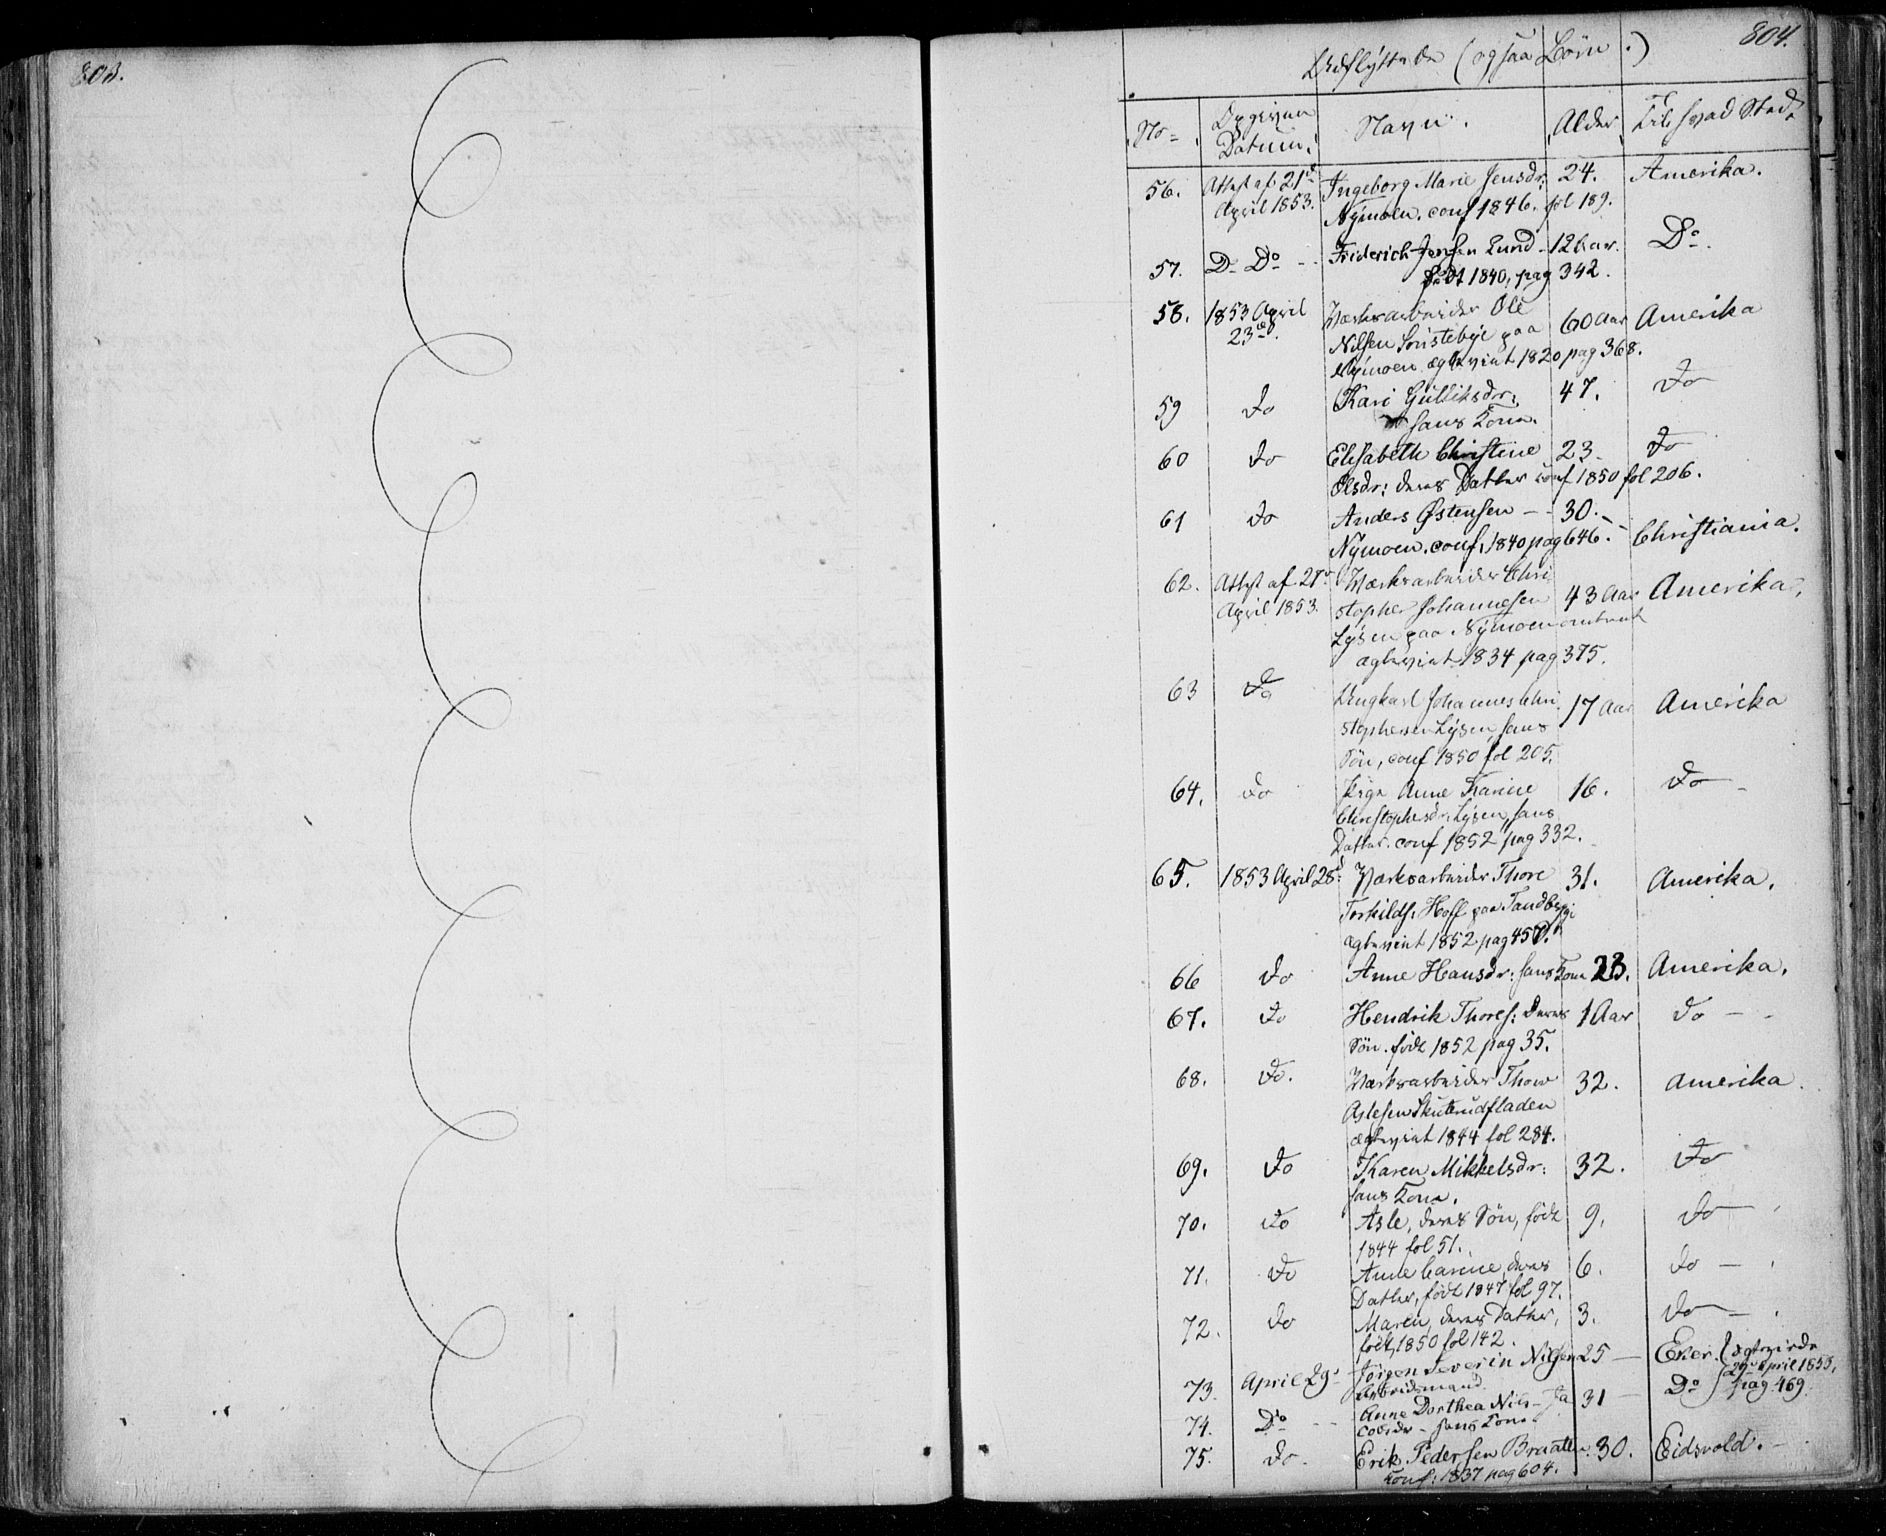 803.
804.
Udflyttede (ogsaa Börn.)
No= Opgiven Datum. Navn. Alder Til hvad Sted.
56. Attest af 21de Ingeborg Marie Jensdr: 24. Amerika.
April 1853. Nymoen. conf 1846. fol 189.
57. Do Do -- Friderich Jensen Lund - 12 aar. Do.
födt 1840, pag 342.
58. 1853 April Værksarbeider Ole 60 Aar Amerika
23de. Nilsen Sönstebye paa
Nymoen. ægteviet 1820 pag 368.
59 do Kari Gulliksdr: 47. do
hans Kone.
60 do Elisabeth Christine 23. do
Olsdr: deres Datter conf 1850 fol 206.
61 do Anders Østensen -- 30. -- Christiania.
Nymoen. conf. 1840 pag 646.
62. Attest af 27de Værksarbeider Chri
April 1853. stopher Johannesen 43 Aar Amerika,
Lysen paa Nymoen
ægteviet 1834 pag 375.
63 do Ungkarl Johannes Chri 17 Aar Amerika
stophersen Lysen, hans
Sön, conf 1850 fol 205.
64. do Pige Anne Karine 16. do -
Christophersdr: Lysen, hans
Datter. conf 1852 pag 332.
65. 1853 April 28d: Værksarbeider Thore 31. Amerika.
Torkilds: Hoff paa Tandberg:
ægteviet 1852 pag 457.
66 do Anne Hansdr: hans Kone 23. Amerika.
67. do Hendrik Thores: deres 1 Aar do - -
Sön. födt 1852 pag 35.
68. do. Værksarbeider Thore 32. Amerika.
Aslesen Skuterudfladen
ægteviet 1844 fol 284.
69. do Karen Mikkelsdr: 32. do
hans Kone.
70. do Asle, deres Sön, födt 9. do
1844 fol 51.
71. do Anne Carine, deres 6. do - .
Datter, födt 1847 fol 97.
72. do Maren, deres Datter, 3. do - .
födt, 1850 fol 142.
73. April 29d Jörgen Severin Nilsen 25 - Eker. {Ægteviede
Arbeidsmand. 29de April 1853,
pag. 469
74. Do -- Anne Dorthea Niels-Ja 31 - Do
cobsdr - hans Kone.
75. do. Erik Pedersen Braaten. 30. Eidsvold. -
Conf: 1837 pag 604.